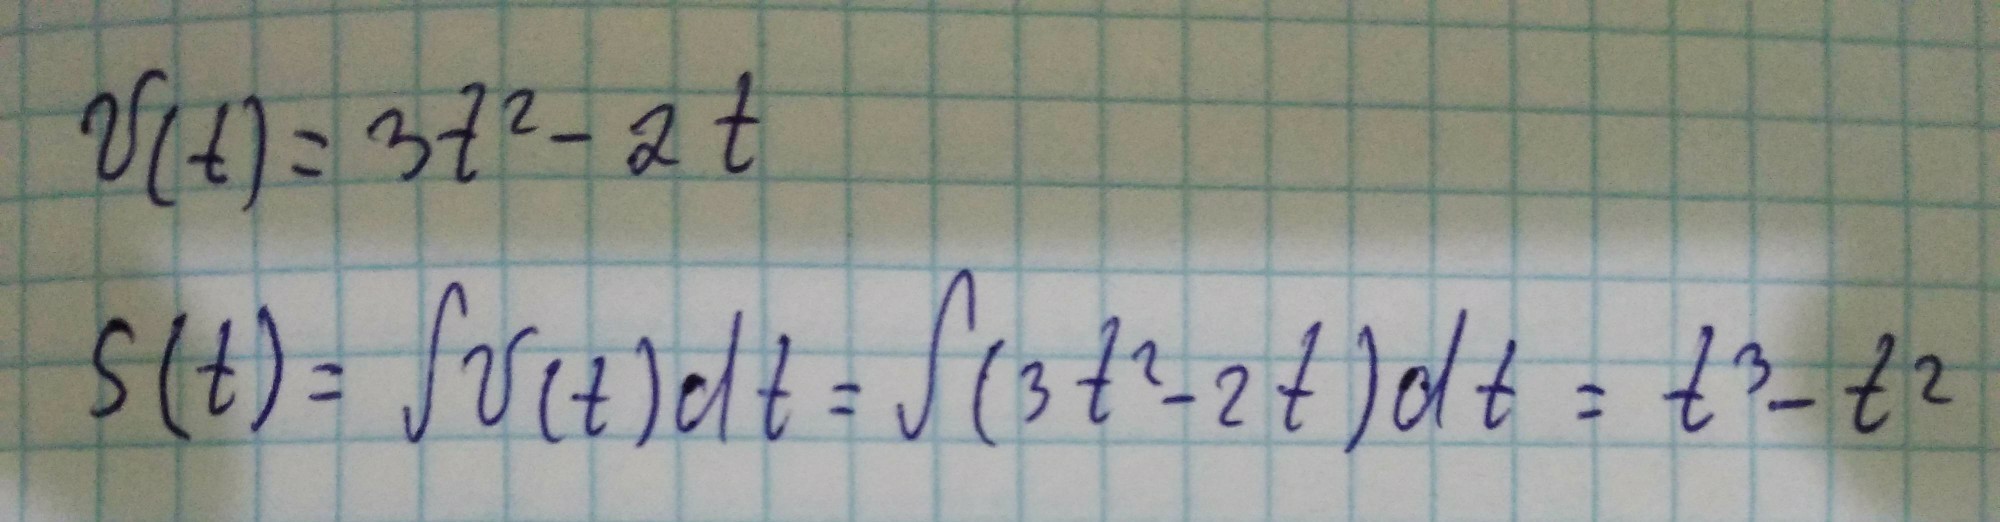 v(t) = 3t² - 2t
S(t) = ∫v(t)dt = ∫(3t² - 2t)dt = t³ - t²